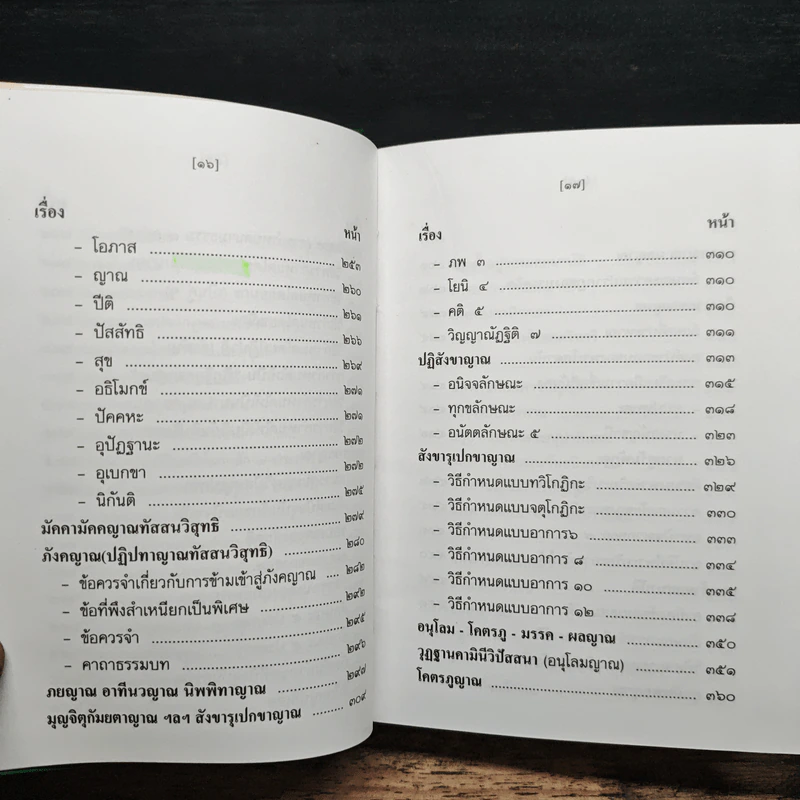 [๑๖]
เรื่อง หน้า
- โอภาส ๒๕๓
- ญาณ ๒๖๐
- ปีติ ๒๖๑
- ปัสสัทธิ ๒๖๖
- สุข ๒๖๙
- อธิโมกข์ ๒๗๑
- ปัคคหะ ๒๗๑
- อุปัฏฐานะ ๒๗๒
- อุเบกขา ๒๗๒
- นิกันติ ๒๗๕
มัคคามัคคญาณทัสสนวิสุทธิ ๒๗๙
ภังคญาณ(ปฏิปทาญาณทัสสนวิสุทธิ) ๒๘๐
- ข้อควรจำเกี่ยวกับการข้ามเข้าสู่ภังคญาณ ๒๘๒
- ข้อที่พึงสำเหนียกเป็นพิเศษ ๒๙๒
- ข้อควรจำ ๒๙๕
- คาถาธรรมบท ๒๙๖
ภยญาณ อาทีนวญาณ นิพพิทาญาณ ๒๙๗
มุญจิตุกัมยตาญาณ ฯลฯ สังขารุเปกขาญาณ ๓๐๙
[๑๗]
เรื่อง หน้า
- ภพ ๓ ๓๑๐
- โยนิ ๔ ๓๑๐
- คติ ๕ ๓๑๐
- วิญญาณัฏฐิติ ๗ ๓๑๑
ปฏิสังขาญาณ ๓๑๓
- อนิจจลักษณะ ๓๑๕
- ทุกขลักษณะ ๓๑๘
- อนัตตลักษณะ ๕ ๓๒๓
สังขารุเปกขาญาณ ๓๒๖
- วิธีกำหนดแบบทวิโกฏิกะ ๓๒๙
- วิธีกำหนดแบบจตุโกฏิกะ ๓๓๐
- วิธีกำหนดแบบอาการ๖ ๓๓๓
- วิธีกำหนดแบบอาการ ๘ ๓๓๔
- วิธีกำหนดแบบอาการ ๑๐ ๓๓๕
- วิธีกำหนดแบบอาการ ๑๒ ๓๓๘
อนุโลม - โคตรภู - มรรค - ผลญาณ ๓๕๐
วุฏฐานคามินีวิปัสสนา (อนุโลมญาณ) ๓๕๑
โคตรภูญาณ ๓๖๐